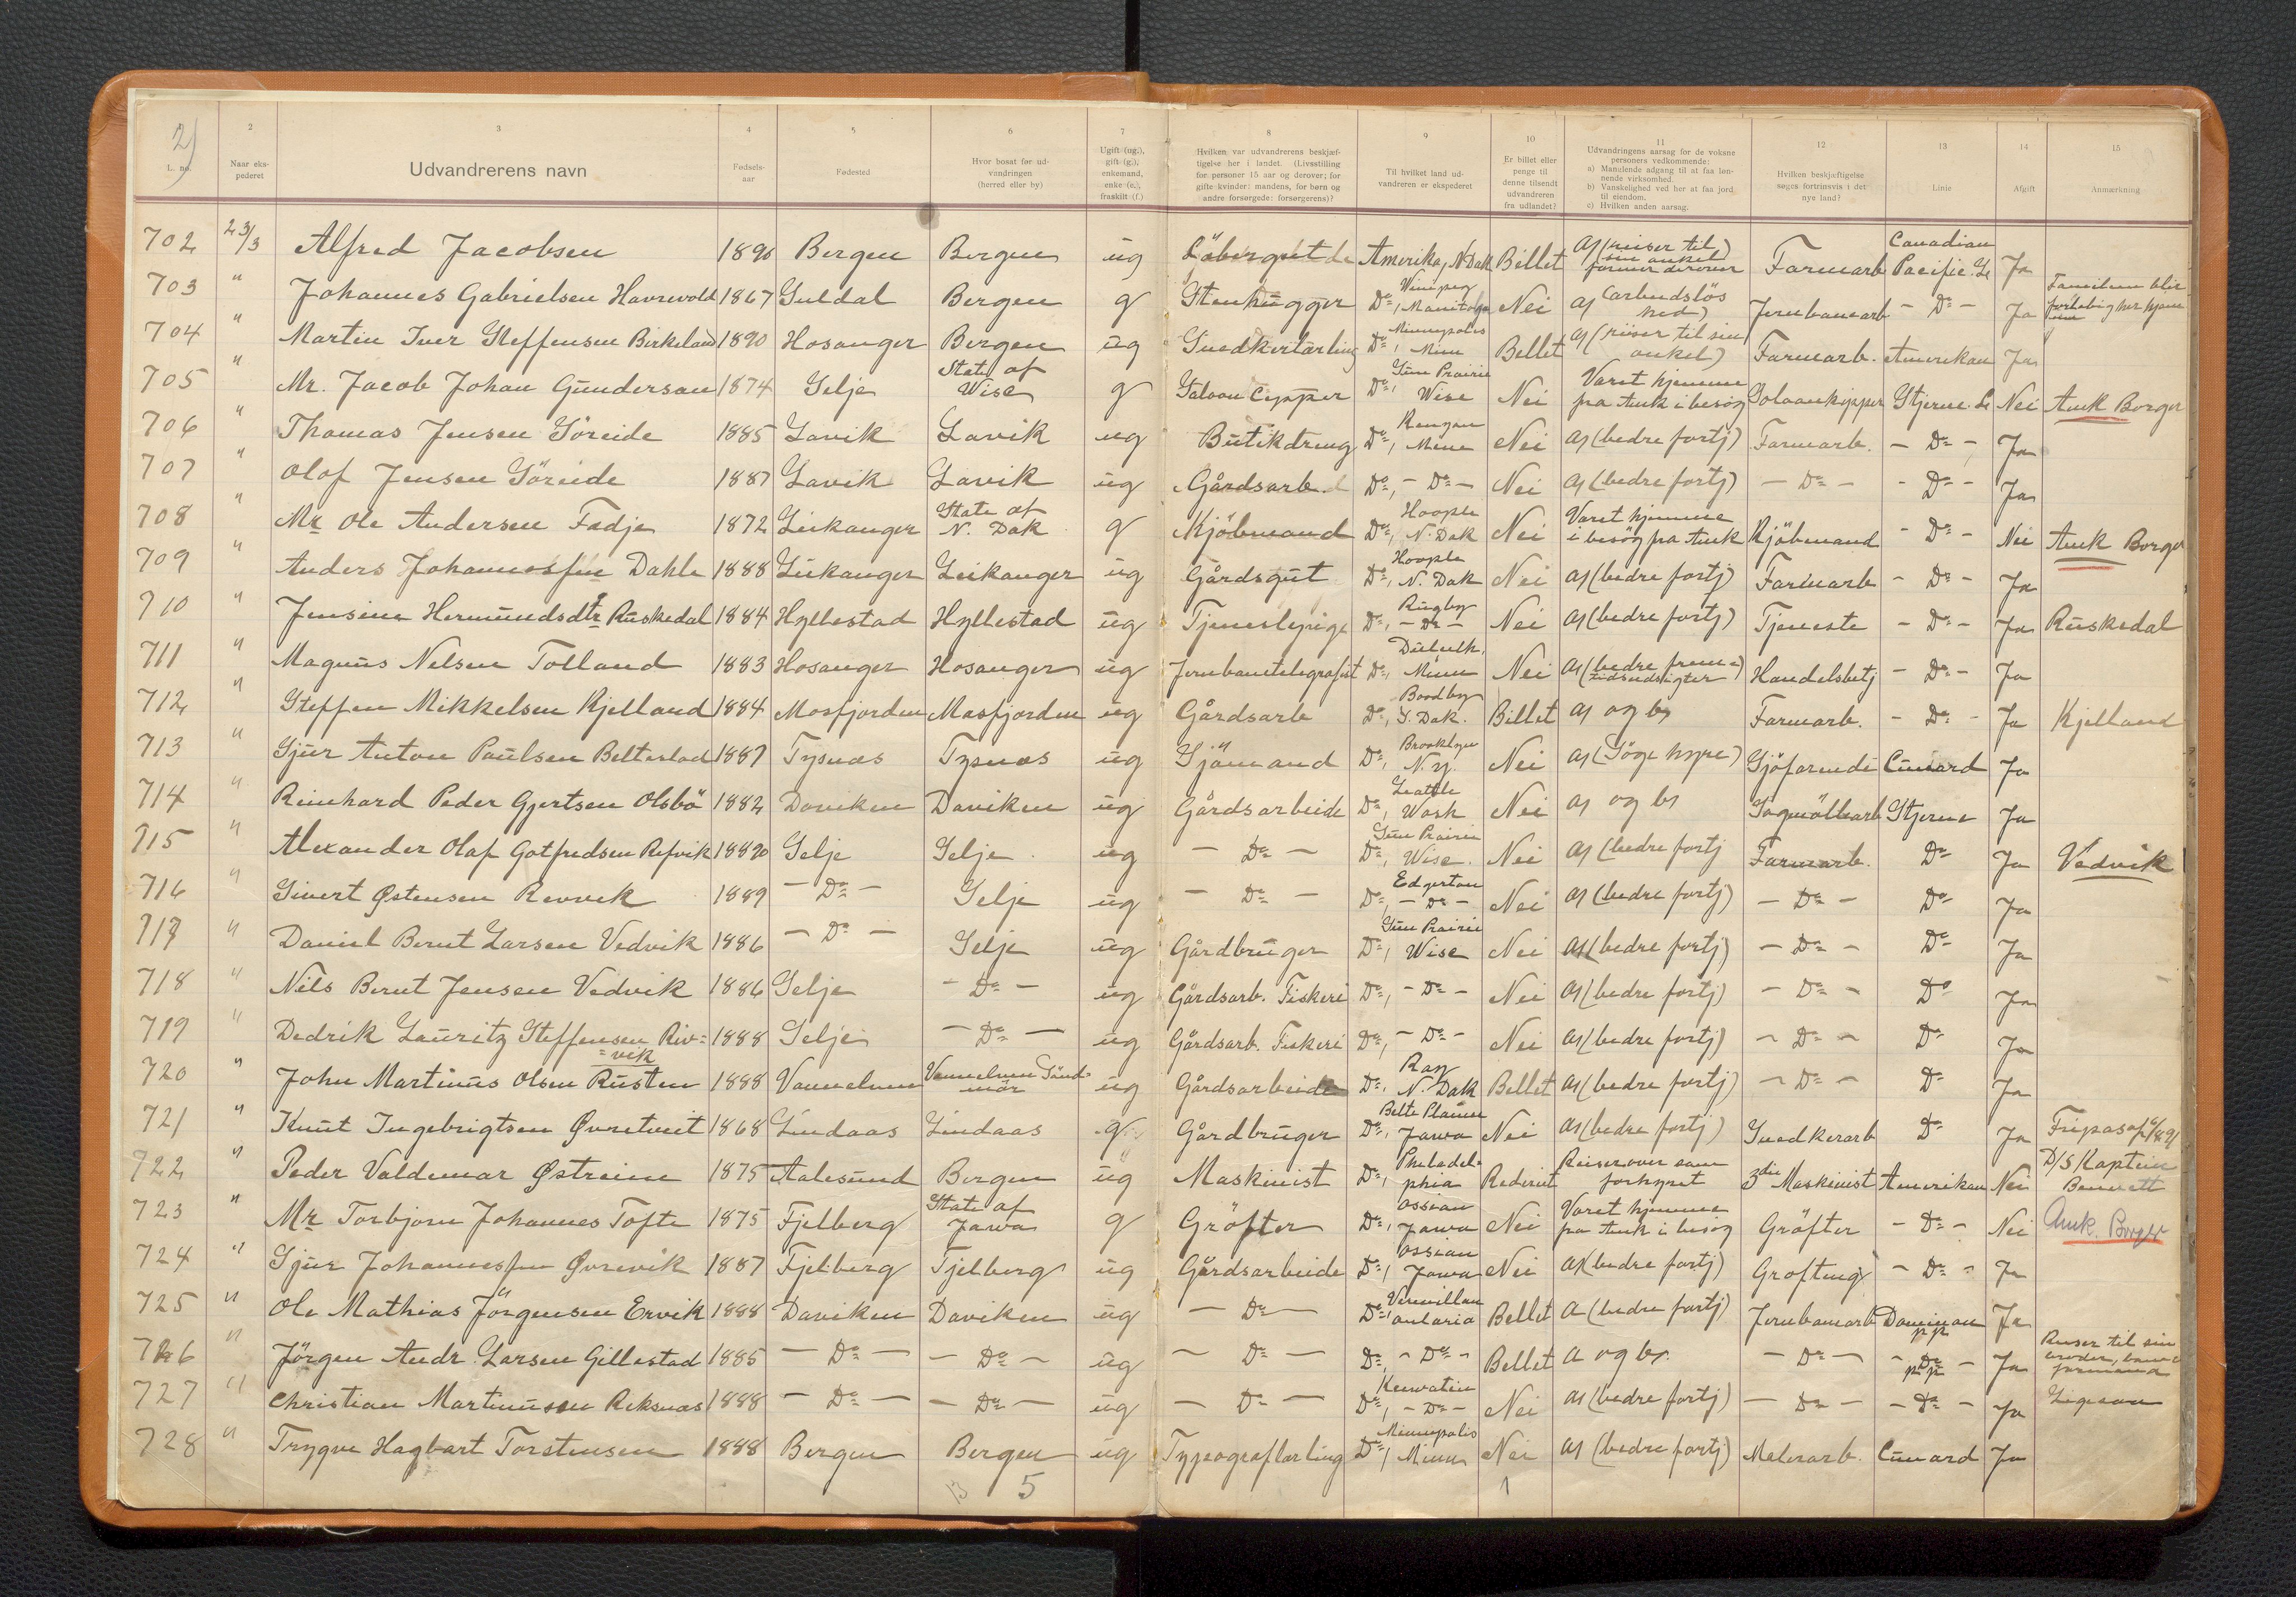 2)
2 3 4 5 6 7 8 9 10 11 12 13 14 15
L. no.
Naar eks-
pederet
Udvandrerens navn
Fødsels-
aar
Fødested
Hvor bosat før ud-
vandringen
(herred eller by)
Ugift (ug.),
gift (g.),
enkemand,
enke (e.),
fraskilt (f.)
Hvilken var udvandrerens beskjæf-
tigelse her i landet. (Livsstilling
for personer 15 aar og derover; for
gifte kvinder: mandens, for børn og
andre forsørgede: forsørgerens)?
Til hvilket land ud-
vandreren er ekspederet
Er billet eller
penge til
denne tilsendt
udvandreren
fra udlandet?
Udvandringens aarsag for de voksne
personers vedkommende:
a) Manglende adgang til at faa løn-
nende virksomhed.
b) Vanskelighed ved her at faa jord
til eiendom.
c) Hvilken anden aarsag.
Hvilken beskjæftigelse
søges fortrinsvis i det
nye land?
Linie
Afgift
Anmærkning
702 23/3 Alfred Jacobsen 1890 Bergen Bergen ug Löbergut Amerika, N Dak Billet a) (reiser til sin onkel) Farmarb Canadian Pacific Ja
703 " Johannes Gabrielsen Havrevold 1867 Guldal Bergen g Stenhugger Do, Winipeg Manitoba Nei a) (arbeidslös hed) Jernbanearb - Do - Ja Familien blir foreløbig her hjemme
704 " Martin Iver Steffensen Birkeland 1890 Hosanger Bergen ug Snedkerlärling Do, Minnepolis Minn Billet a) (reiser til sin onkel) Farmarb. Amerikan Ja
705 " Mr. Jacob Johan Gunderson 1874 Selje State of Wisc g Saloon Cipper Do, Sun Prairie Wisc Nei Varet hjemme fra Amk i besøg Soloonkipper Stjerne L Nei Amk Borger
706 " Thomas Jensen Söreide 1885 Lavik Lavik ug Butikdreng Do, Minn Nei a) (bedre fortj) Farmarb. - Do - Ja
707 " Olaf Jensen Söreide 1887 Lavik Lavik ug Gårdsarb Do, - Do - Nei a) (bedre fortj) - Do - - Do - Ja
708 " Mr Ole Andersen Fadje 1872 Leikanger State of N. Dak g Kjöbmand Do, Hoople N. Dak Nei Varet hjemme i besög fra Amk Kjöbmand - Do - Nei Amk Borger
709 " Anders Johannessen Dahle 1888 Leikanger Leikanger ug Gårdsgut Do, Hoople N. Dak Nei a) (bedre fortj) Farmarb - Do - Ja
710 " Jensine Hermundsdtr Ruskedal 1884 Hyllestad Hyllestad ug Tjenestepige Do, Rugby - Do - Nei a) (bedre fortj) Tjeneste - Do - Ja Ruskedal
711 " Magnus Nelsen Tolland 1883 Hosanger Hosanger ug Jernbanetelegrafist Do, Duluth, Minn Nei a) (bedre fremtidsudsigter) Handelsbetj - Do - Ja
712 " Steffen Mikkelsen Kjelland 1884 Masfjorden Masfjorden ug Gårdsarb Do, S. Dak. Billet a) og b) Farmarb. - Do - Ja Kjelland
713 " Sjur Anton Paulsen Beltestad 1887 Tysnæs Tysnæs ug Sjömand Do, Brooklyn N.Y. Nei a) (Söge hyre) Sjöfarende Cunard Ja
714 " Reinhard Peder Gjertsen Olsbö 1882 Daviken Daviken ug Gårdsarbeide Do, Seattle Wash Nei a) og b) Sagmöllearb Stjerne Ja
715 " Alexander Olaf Gotfredsen Refvik 1890 Selje Selje ug - Do - Do, Sun Prairie Wisc. Nei a) (bedre fortj Farmarb. Do Ja Vedvik
716 " Sivert Østensen Revvik 1889 - Do - Selje ug - Do - Do, Edgerton - Do - Nei a) (bedre fortj) - Do - Do Ja
717 " Daniel Bernt Larsen Vedvik 1886 - Do - Selje ug Gårdbruger Do, Sun Prairie Wisc Nei a) (bedre fortj) - Do - Do Ja
718 " Nils Bernt Jensen Vedvik 1886 Selje - Do - ug Gårdsarb. Fiskeri Do, - Do - Nei a) (bedre fortj) - Do - Do Ja
719 " Dedrik Lauritz Steffensen Riv=
=vik 1888 Selje - Do - ug Gårdsarb. Fiskeri Do, - Do - Nei a) (bedre fortj) - Do - Do Ja
720 " John Martinus Olsen Rusten 1888 Vannelven Vannelven Sönd=mör ug Gårdsarbeide Do, Ray N. Dak Billet a) (bedre fortj) - Do - Do Ja
721 " Knut Ingebrigtsen Øvretveit 1868 Lindaas Lindaas g Gårdbruger Do, Belle Plaine Jowa Nei a) (bedre fortj) Snedkerarb Do Ja Fripas
722 " Peder Valdemar Østreim 1875 Aalesund Bergen ug Maskinist Do, Philadelphia Rederiet Reiser over som forhyret 3die Maskinist Amerikan Nei D/S Kaptein Bennett
723 " Mr Torbjorn Johannes Tofte 1875 Fjelberg State of Jowa g Gröfter Do, Ossian Jowa Nei Varet hjemme fra Amk i besög Gröfter - Do - Nei Amk. Borger
724 " Sjur Johannessen Øvrevik 1887 Fjelberg Fjelberg ug Gårdsarbeide Do, Ossian Jowa Nei a) (bedre fortj) Grofting - Do - Ja
725 " Ole Mathias Jörgensen Ervik 1888 Daviken Daviken ug - Do - Do, Vermillan ontaria Billet a (bedre fortj) Jernbanearb Dominion pp Ja
726 " Jörgen Andr. Larsen Gillestad 1885 - Do - - Do - ug - Do - Do, - Do - Billet a og b). - Do - - Do - pp Ja Reiser til sin broder,
727 " Christian Martinusen Reksnæs 1888 - Do - - Do - ug - Do - Do, Keewatin - Do - Nei a) (bedre fortj) - Do - - Do - Ja
728 " Trygve Hagbart Torstensen 1888 Bergen Bergen ug Typograflärling Do, Minnepolis Minn Nei a) (bedre fortj) Malerarb. Cunard Ja
13 5 1